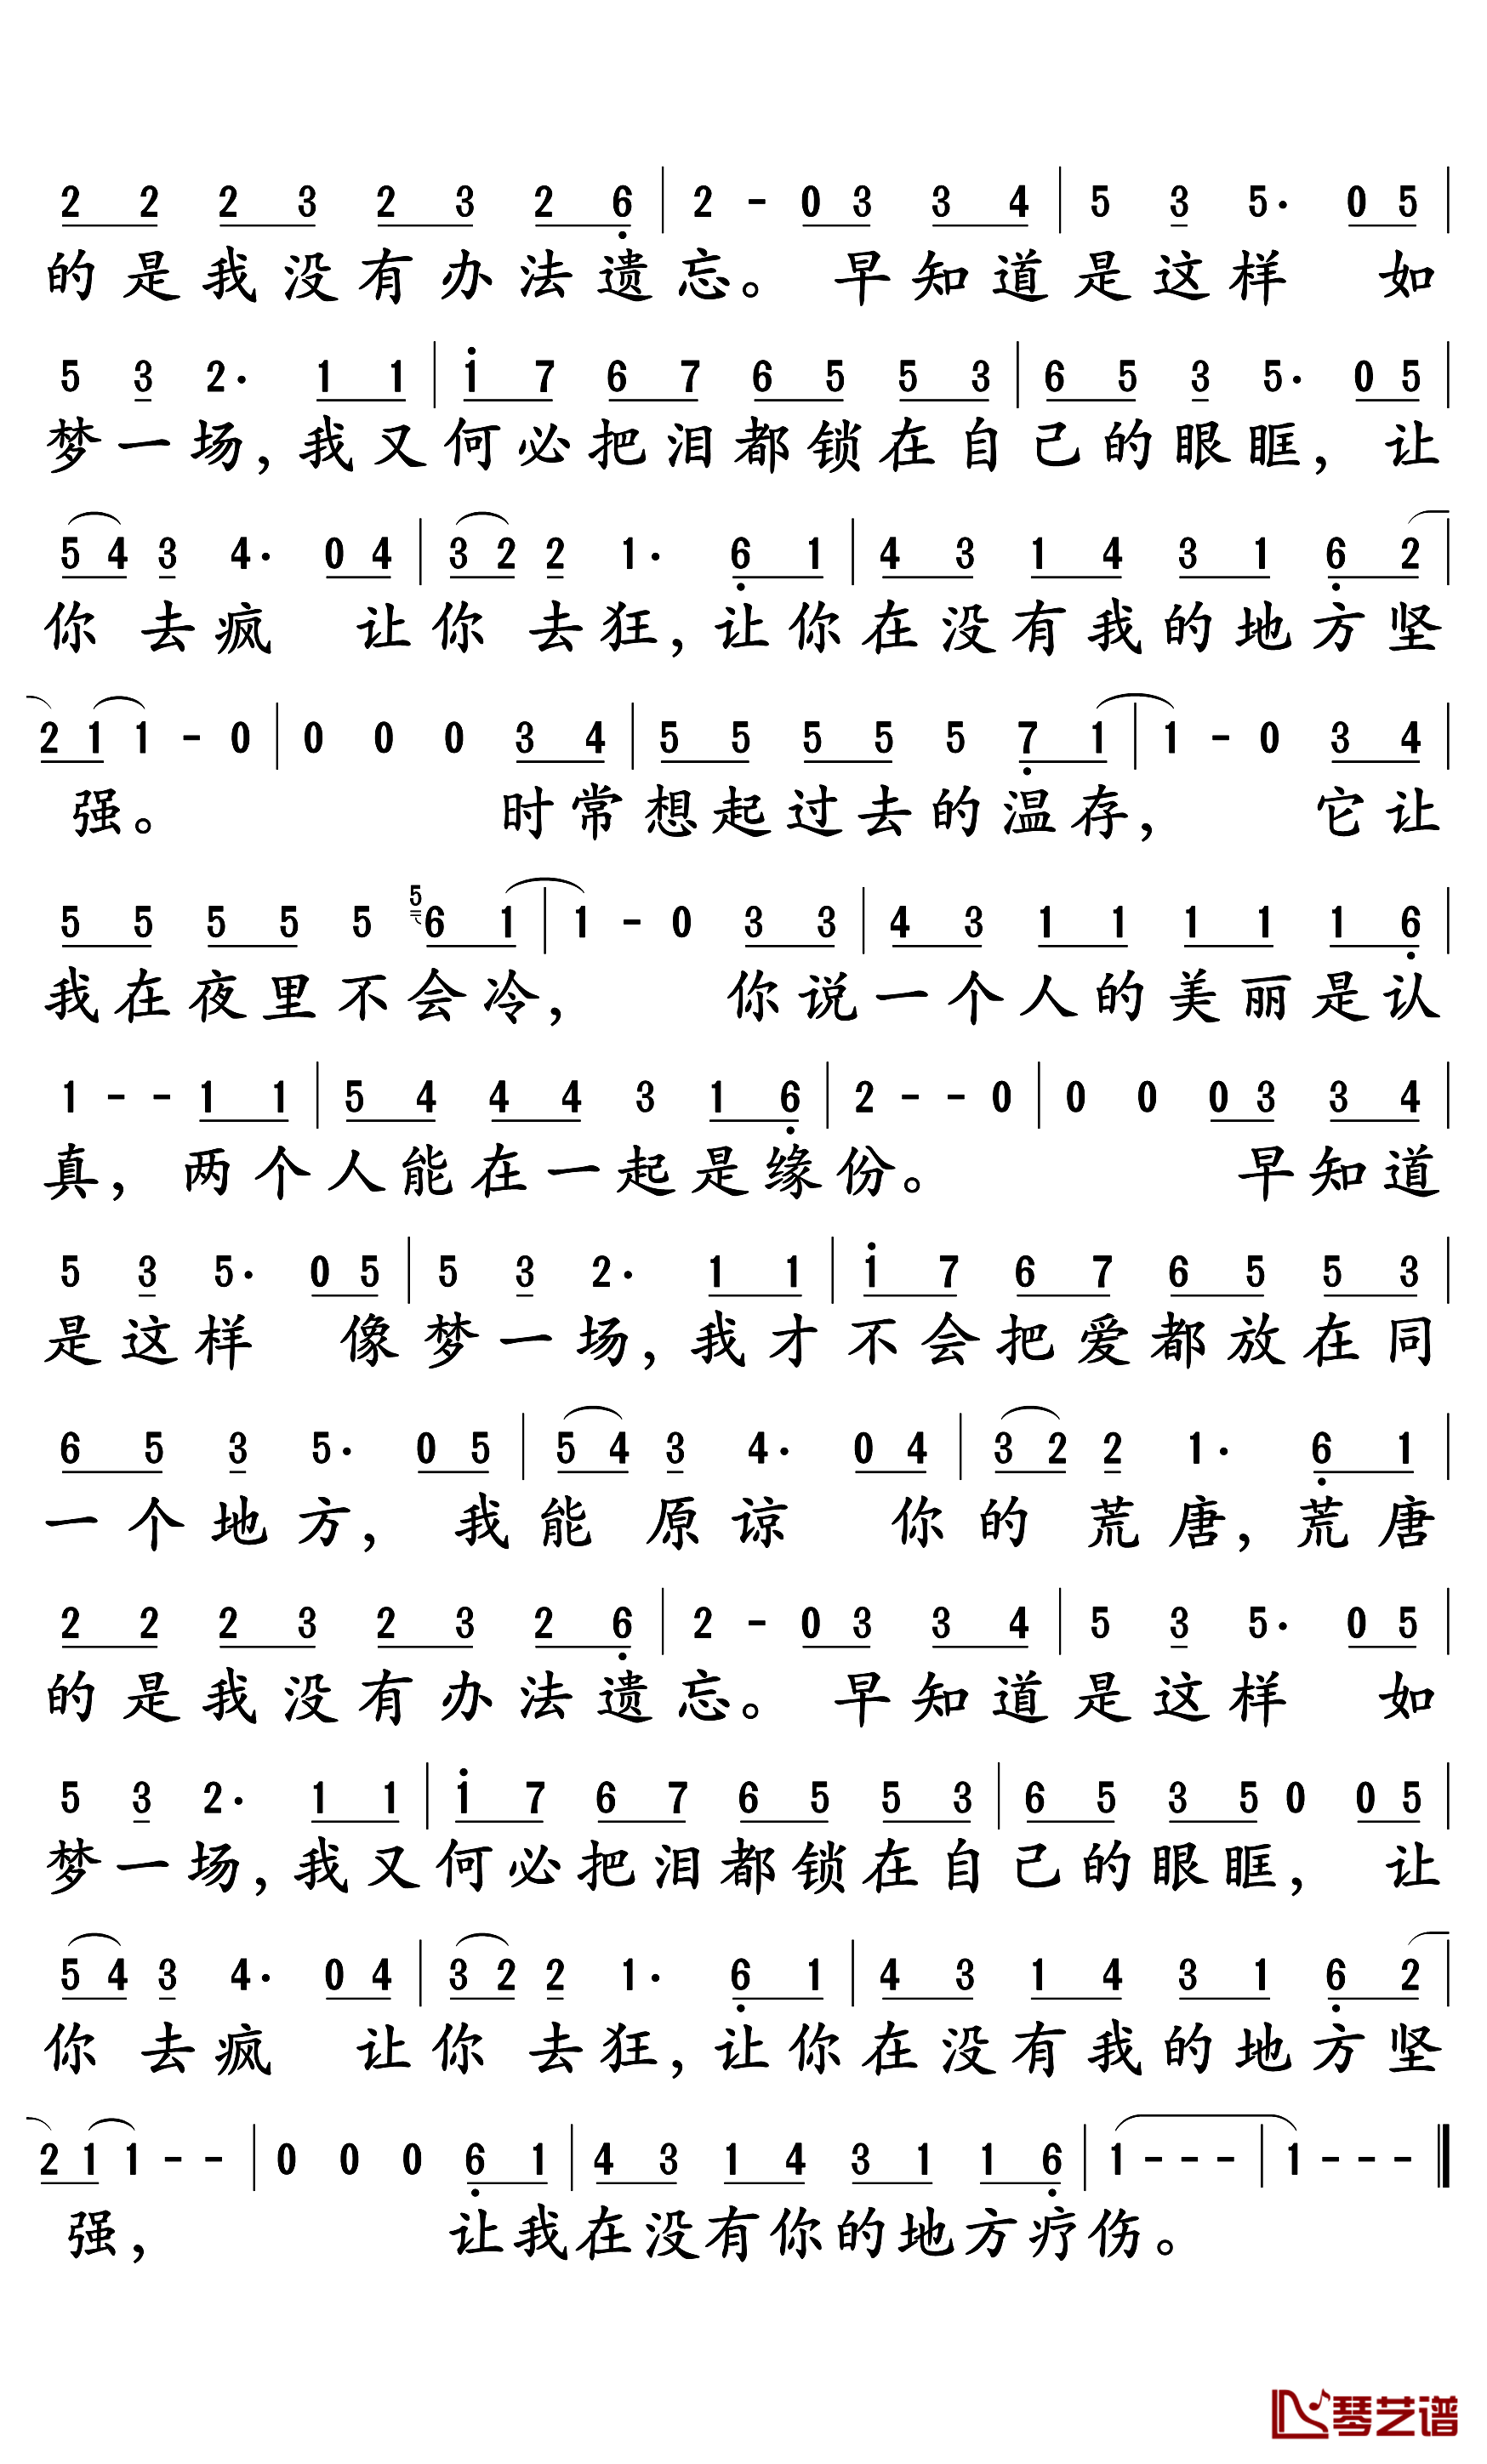 2 2 2 3 2 3 2 6 | 2 - 0 3 3 4 | 5 3 5· 0 5 |
的是我没有办法遗忘。早知道是这样 如
5 3 2· 1 1 | 1 7 6 7 6 5 5 3 | 6 5 3 5· 0 5 |
梦一场,我又何必把泪都锁在自己的眼眶,让
5 4 3 4· 0 4 | 3 2 2 1· 6 1 | 4 3 1 4 3 1 6 2 |
你 去疯 让你 去狂,让你在没有我的地方坚
2 1 1 - 0 | 0 0 0 3 4 | 5 5 5 5 5 7 1 | 1 - 0 3 4 |
强。 时常想起过去的温存, 它让
5 5 5 5 5 5 6 1 | 1 - 0 3 3 | 4 3 1 1 1 1 1 6 |
我在夜里不会冷, 你说一个人的美丽是认
1 - - 1 1 | 5 4 4 4 3 1 6 | 2 - - 0 | 0 0 0 3 3 4 |
真,两个人能在一起是缘份。 早知道
5 3 5· 0 5 | 5 3 2· 1 1 | 1 7 6 7 6 5 5 3 |
是这样 像梦一场,我才不会把爱都放在同
6 5 3 5· 0 5 | 5 4 3 4· 0 4 | 3 2 2 1· 6 1 |
一个地方, 我能 原谅 你的 荒唐,荒唐
2 2 2 3 2 3 2 6 | 2 - 0 3 3 4 | 5 3 5· 0 5 |
的是我没有办法遗忘。早知道是这样 如
5 3 2· 1 1 | 1 7 6 7 6 5 5 3 | 6 5 3 5 0 0 5 |
梦一场,我又何必把泪都锁在自己的眼眶, 让
5 4 3 4· 0 4 | 3 2 2 1· 6 1 | 4 3 1 4 3 1 6 2 |
你 去疯 让你 去狂,让你在没有我的地方坚
2 1 1 - - | 0 0 0 6 1 | 4 3 1 4 3 1 1 6 | 1 - - - | 1 - - - ‖
强, 让我在没有你的地方疗伤。
琴艺谱